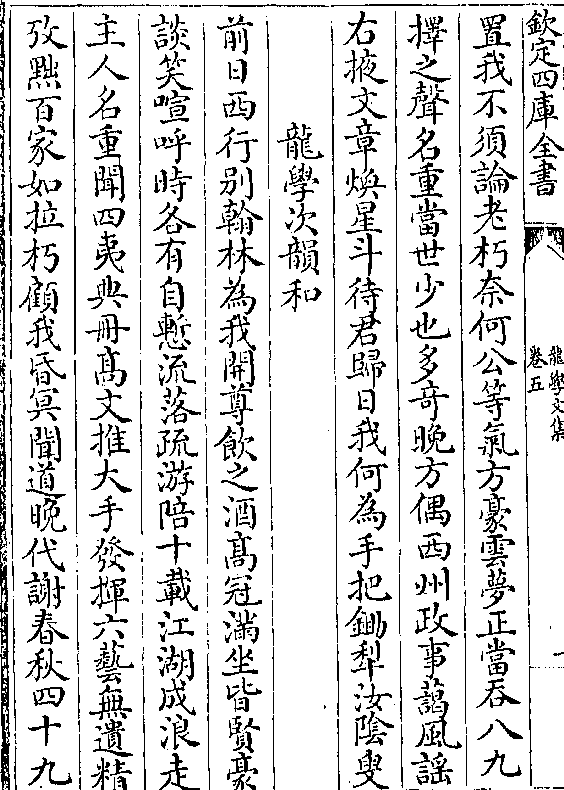 欽定四庫全書
龍學文集
卷五
置我不須論老朽奈何公等氣方豪雲夢正當吞八九
擇之聲名重當世少也多竒晚方偶西州政事藹風謡
右掖文章煥星斗待君歸日我何為手把鋤犁汝陰叟
龍學次韻和
前日西行别翰林為我開尊飲之酒髙冠滿坐皆賢豪
談笑喧呼時各有自慙流落疏游陪十載江湖成浪走
主人名重聞四夷典冊髙文推大手發揮六藝無遺精
攷㸃百家如拉朽顧我昏冥聞道晚代謝春秋四十九